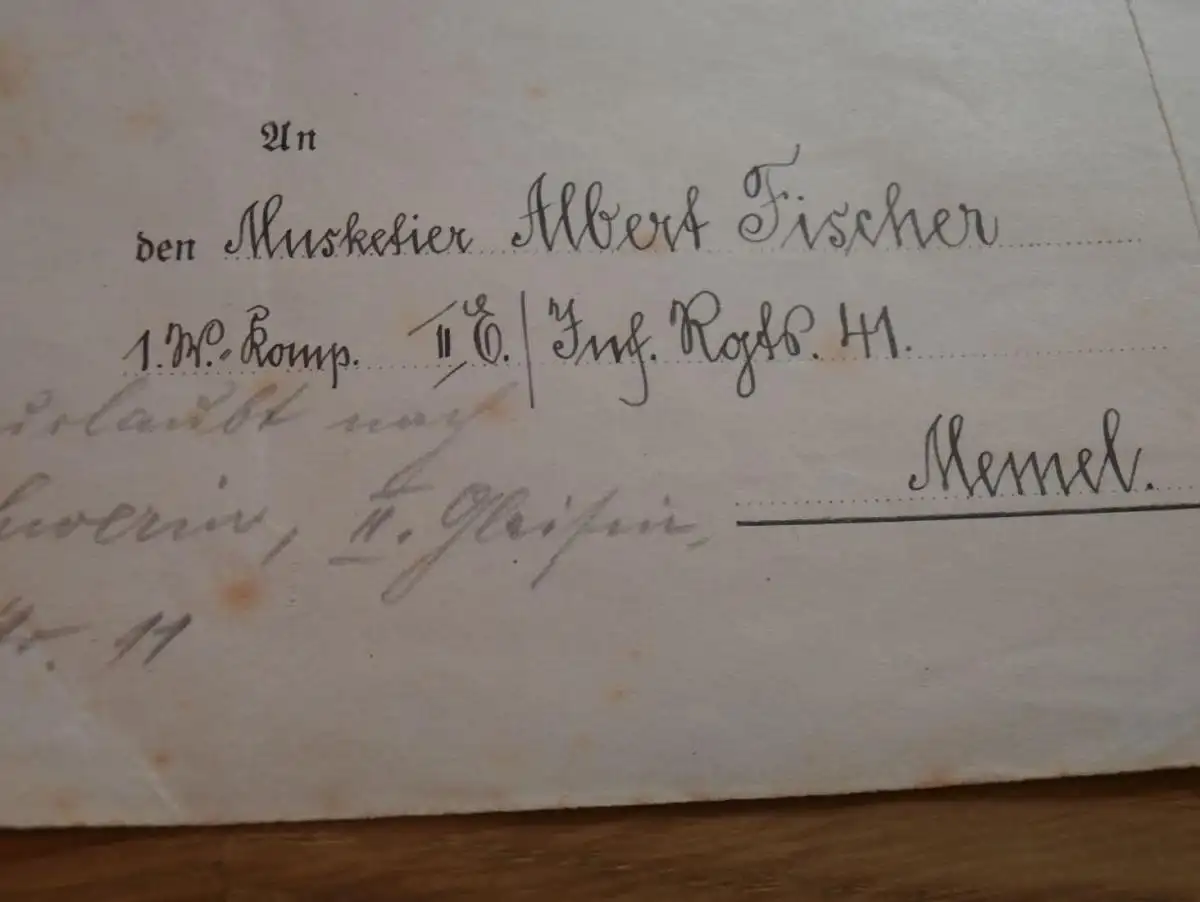 An
den Musketier Albert Fischer
1. W.-Komp. II E. / Inf. Rgts. 41.
urlaubt nach
Memel.
hwerin, II.
Nr. 11